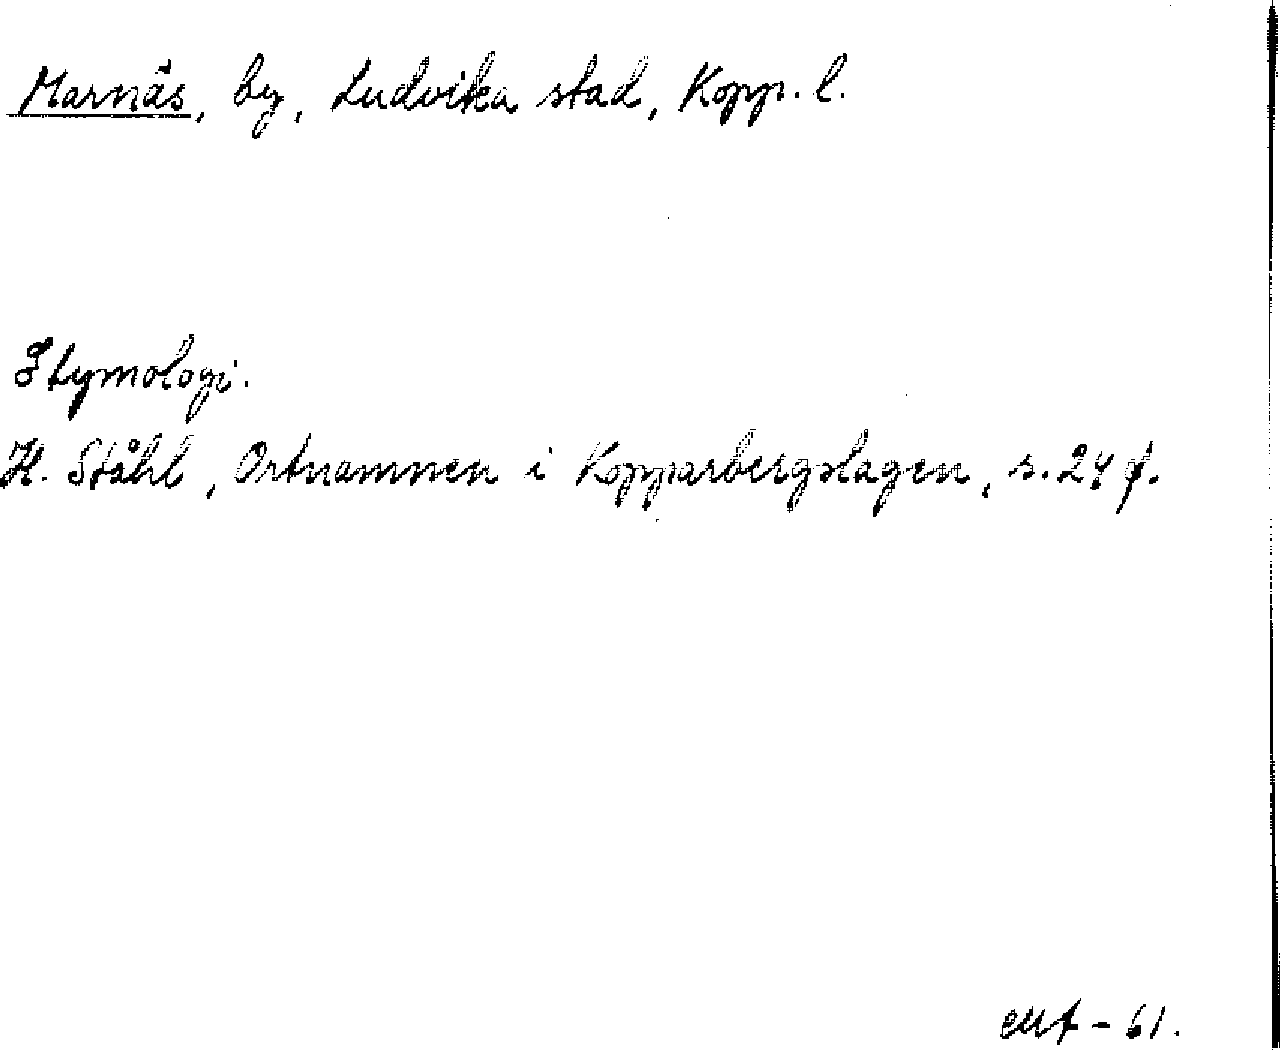 Marnäs, by, Ludvika stad, Kopp. l.
Etymologi.
H. Ståhl, Ortnamnen i Kopparbergslagen, s. 24 f.
- 61.